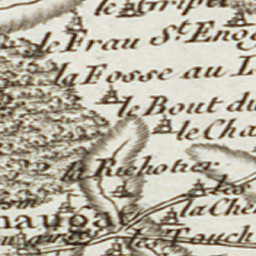 le Gripe
le Frau St. Enog
la Fosse au L
le Bout du
le Cha
la Richotier
les
la Che
naugas
les Touch